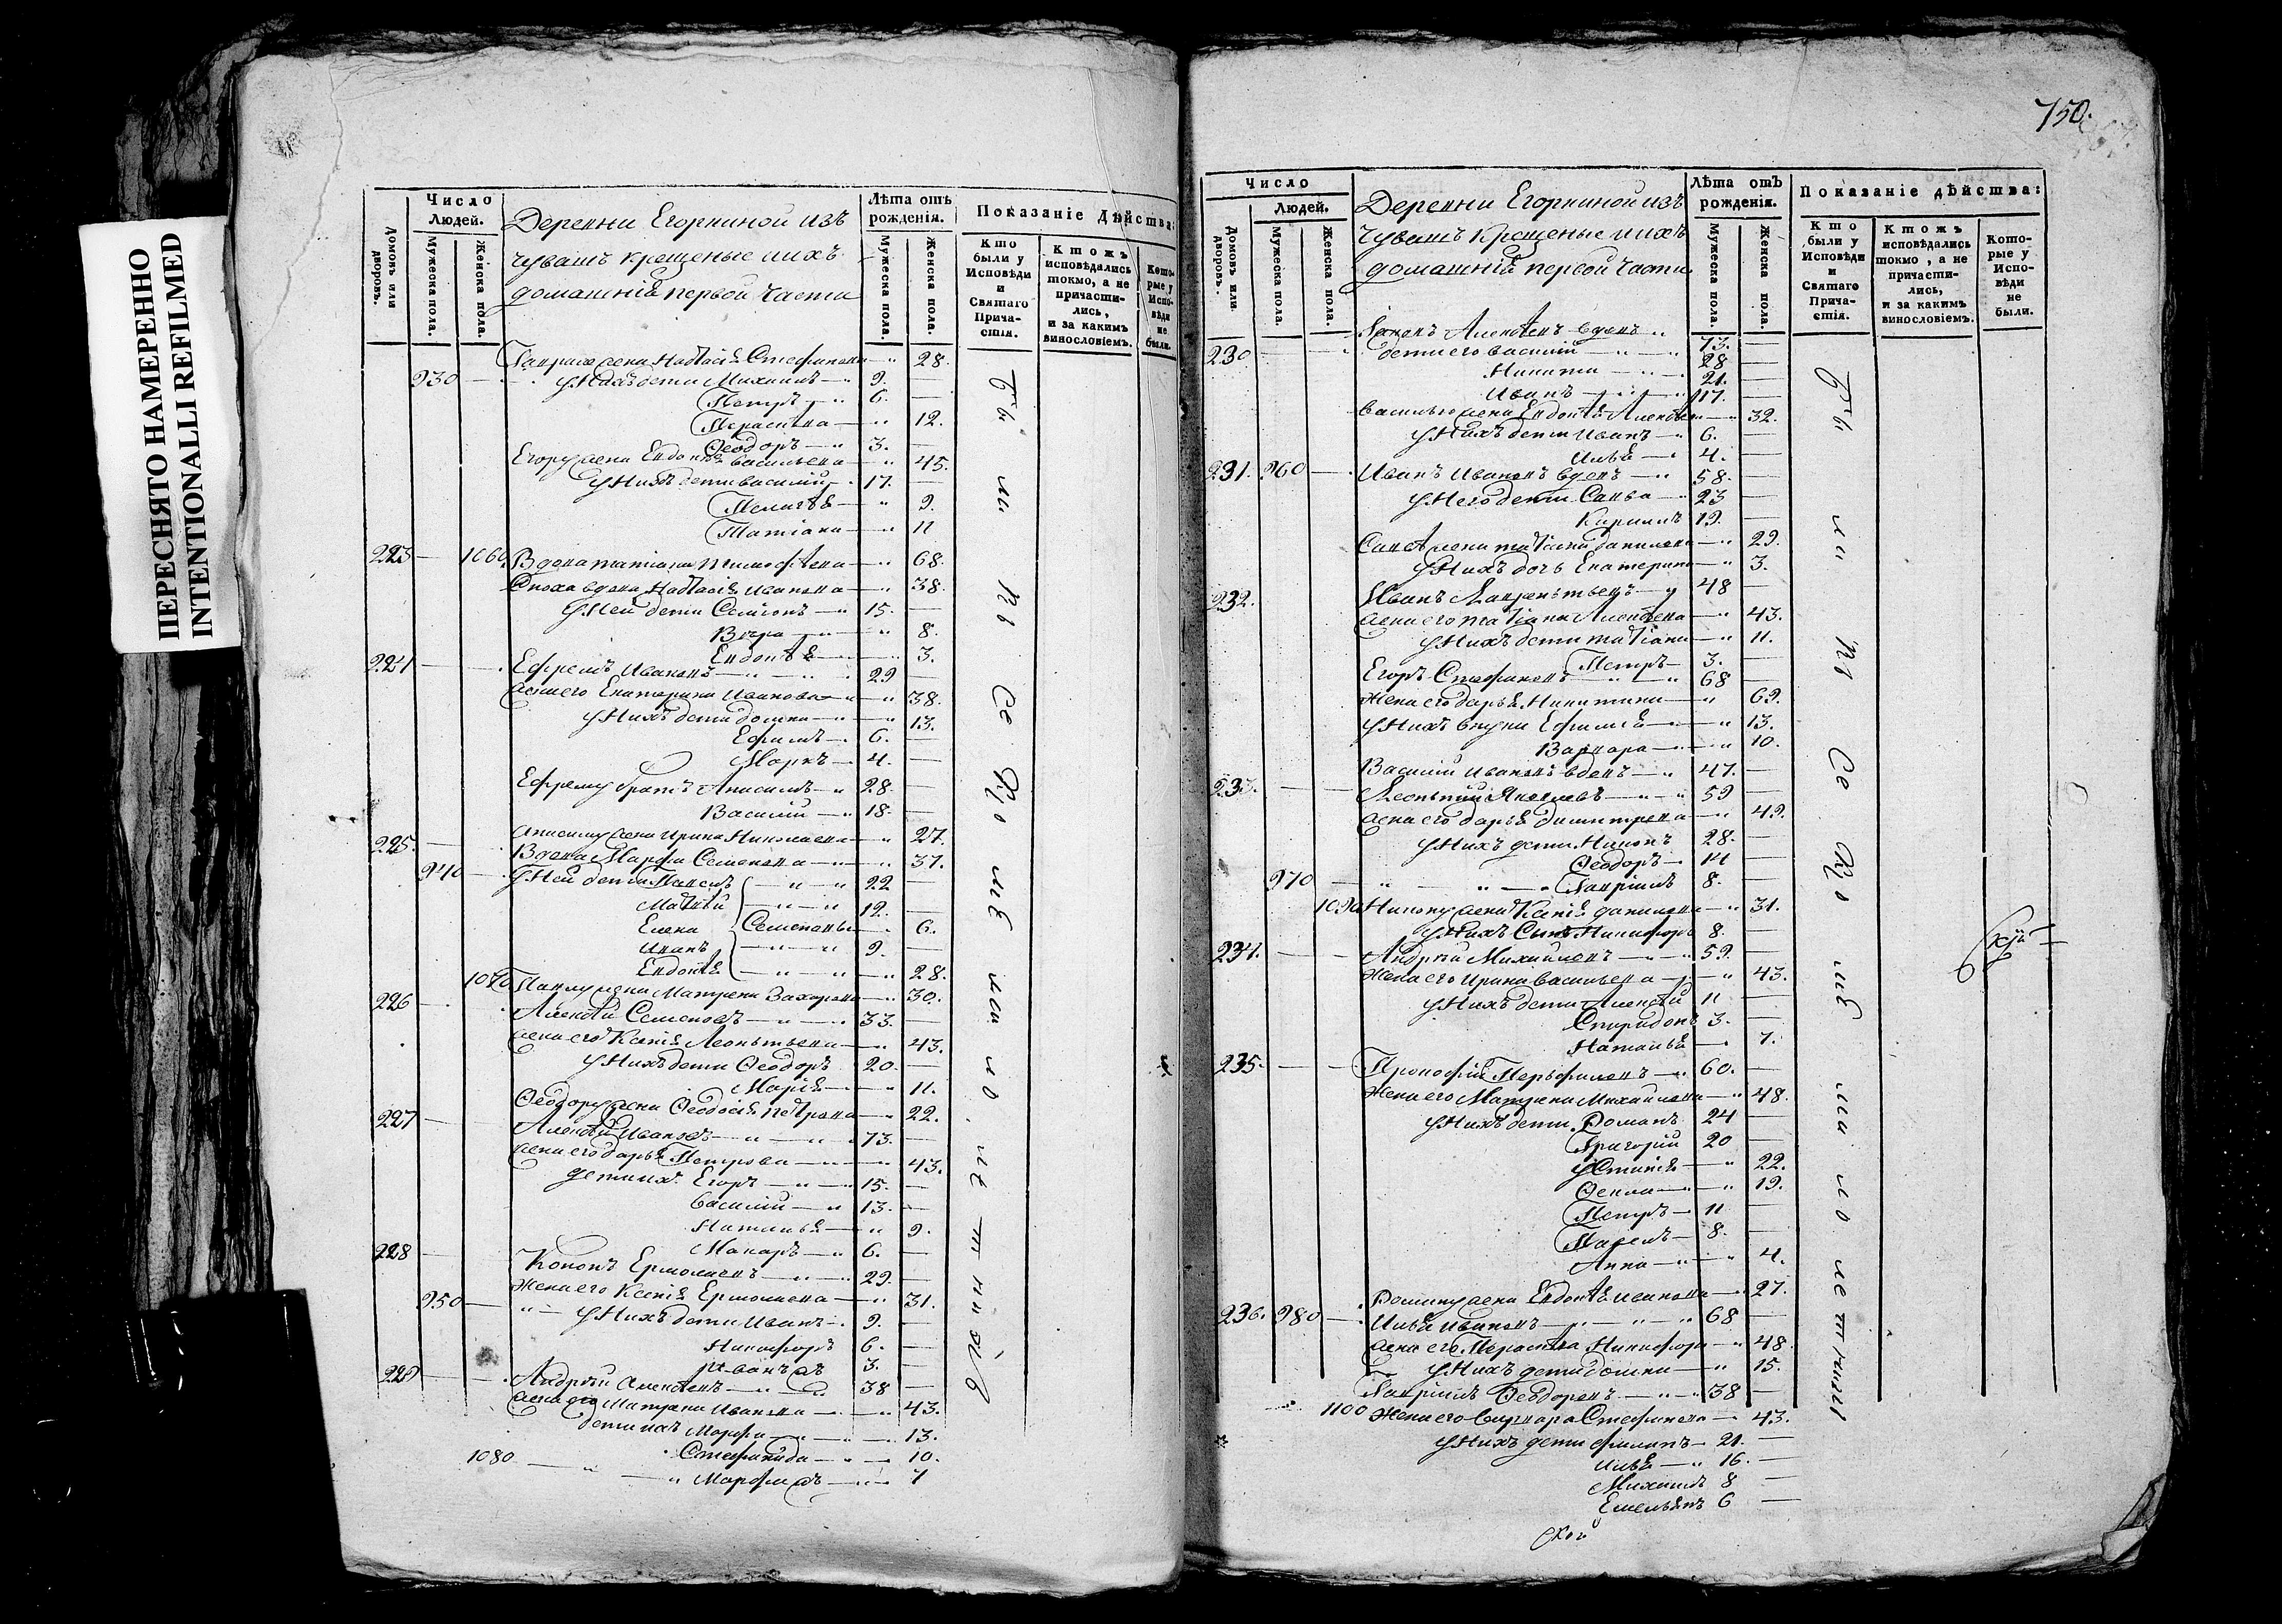 ПЕРЕСНЯТО НАМЕРЕННО
INTENTIONALLI REFILMED
Число
Людей.
Домовъ или дворовъ.
Мужеска пола.
Женска пола.
Деревни Егоркиной изъ
чувашъ крещеные и ихъ
домашнія первой части
Лѣта отъ рожденія.
Мужеска пола.
Женска пола.
Показаніе дѣйства:
Кто были у Исповѣди и Святаго Причастія.
Ктожъ исповѣдались токмо, а не причастились, и за какимъ винословіемъ.
Которые у Исповѣди не были.
Гаврил жена Настасія Стефанова 28.
930 У нихъ дети Михаилъ 9.
Петръ 6.
Параскева 12.
Ѳеодоръ 3.
Егору жена Евдокія Васильева 45.
У нихъ дети Василій 17.
Пелагѣя 9.
Татіана 11
223 1060 Вдова Татіана Тимофѣева 68.
Сноха вдова Настасія Иванова 38.
У ней дети Семіонъ 15.
Вѣра 8.
Евдокія 3.
224 Ефремъ Ивановъ 29
жена его Екатерина Иванова 38.
У нихъ дети Домна 13.
Ефимъ 6.
Маркъ 4.
Ефрему братъ Анисимъ 28.
Василій 18.
Анисиму жена Ирина Николаева 27.
225. Вдова Марфа Семенова 37.
940 У ней дети Павелъ 22
Матвѣй 12.
Елена Семеновы 6.
Иванъ 9.
Евдокія 28.
1070 Павлу жена Матрена Захарова 30.
226 Алексѣй Семеновъ 33.
жена его Ксенія Леонтьева 43.
У нихъ дети Ѳеодоръ 20.
Марія 11.
Ѳеодору жена Ѳеодосія Петрова 22.
227 Алексѣй Ивановъ 73.
жена его Дарья Петрова 43.
дети ихъ Егоръ 15.
Василій 13.
Наталья 9.
Макаръ 6.
228 Кононъ Ермолаевъ 29.
Жена его Ксенія Ермолаева 31.
950 У нихъ дети Иванъ 9.
Никифоръ 6.
Иванъ 3.
229 Андрѣй Алексѣевъ 38
жена его Матрена Иванова 43.
дети ихъ Марфа 13.
1080 Стефанида 10.
Марфа 7
750.
Число
Людей.
Домовъ или дворовъ.
Мужеска пола.
Женска пола.
Деревни Егоркиной изъ
чувашъ крещеные и ихъ
домашнія первой части
Лѣта отъ рожденія.
Мужеска пола.
Женска пола.
Показаніе дѣйства:
Кто были у Исповѣди и Святаго Причастія.
Ктожъ исповѣдались токмо, а не причастились, и за какимъ винословіемъ.
Которые у Исповѣди не были.
230 Алексѣевъ вдовъ 73.
дети его Василій 28
Никита 21.
Иванъ 17.
Василью жена Евдокія Алексѣева 32.
У нихъ дети Иванъ 6.
Илья 4.
231. 960 Иванъ Ивановъ вдовъ 58.
У него дети Савва 23
Кирилъ 19.
Савѣ жена Татіана Данилова 29.
У нихъ дочь Екатерина 3.
232. Иванъ Лаврентьевъ 48
жена его Татіана Алексѣева 43.
У нихъ дети Татіана 11.
Петръ 3.
Егоръ Стефановъ 68
Жена его Дарья Никитина 69.
У нихъ внуки Ефимія 13.
Варвара 10.
Василій Ивановъ вдовъ 47.
233. Леонтій Яковлевъ 59
жена его Дарья Димитрева 49.
У нихъ дети Никонъ 28.
Ѳеодоръ 14
970 Гавріилъ 8.
1090 Никону жена Ксенія Данилова 31.
У нихъ сынъ Никифоръ 8.
234. Андрѣй Михайловъ 59.
Жена его Ирина Васильева 43.
У нихъ дети Алексѣй 11
Спиридонъ 3.
Наталья 7.
235. Прокофій Перфиловъ 60.
Жена его Матрена Михайлова 48.
У нихъ дети Романъ 24
Григорій 20
Устинія 22.
Ѳекла 19.
Петръ 11
Павелъ 8.
Анна 4.
Роману жена Евдокія Иванова 27.
236. 980 Илья Ивановъ 68
жена его Параскева Никифор 48.
У нихъ дети Домна 15.
Гавріилъ Ѳеодоровъ 38
1100 Жена его Варвара Стефанова 43.
У нихъ дети Филипъ 21.
Илья 16.
Михаилъ 8
Емельянъ 6